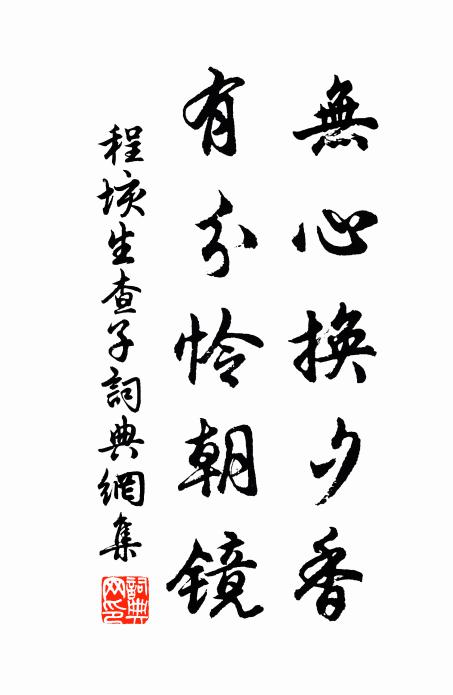 無心換夕香
有分怜朝镜
程垓生查子詞典網集
詞典网印